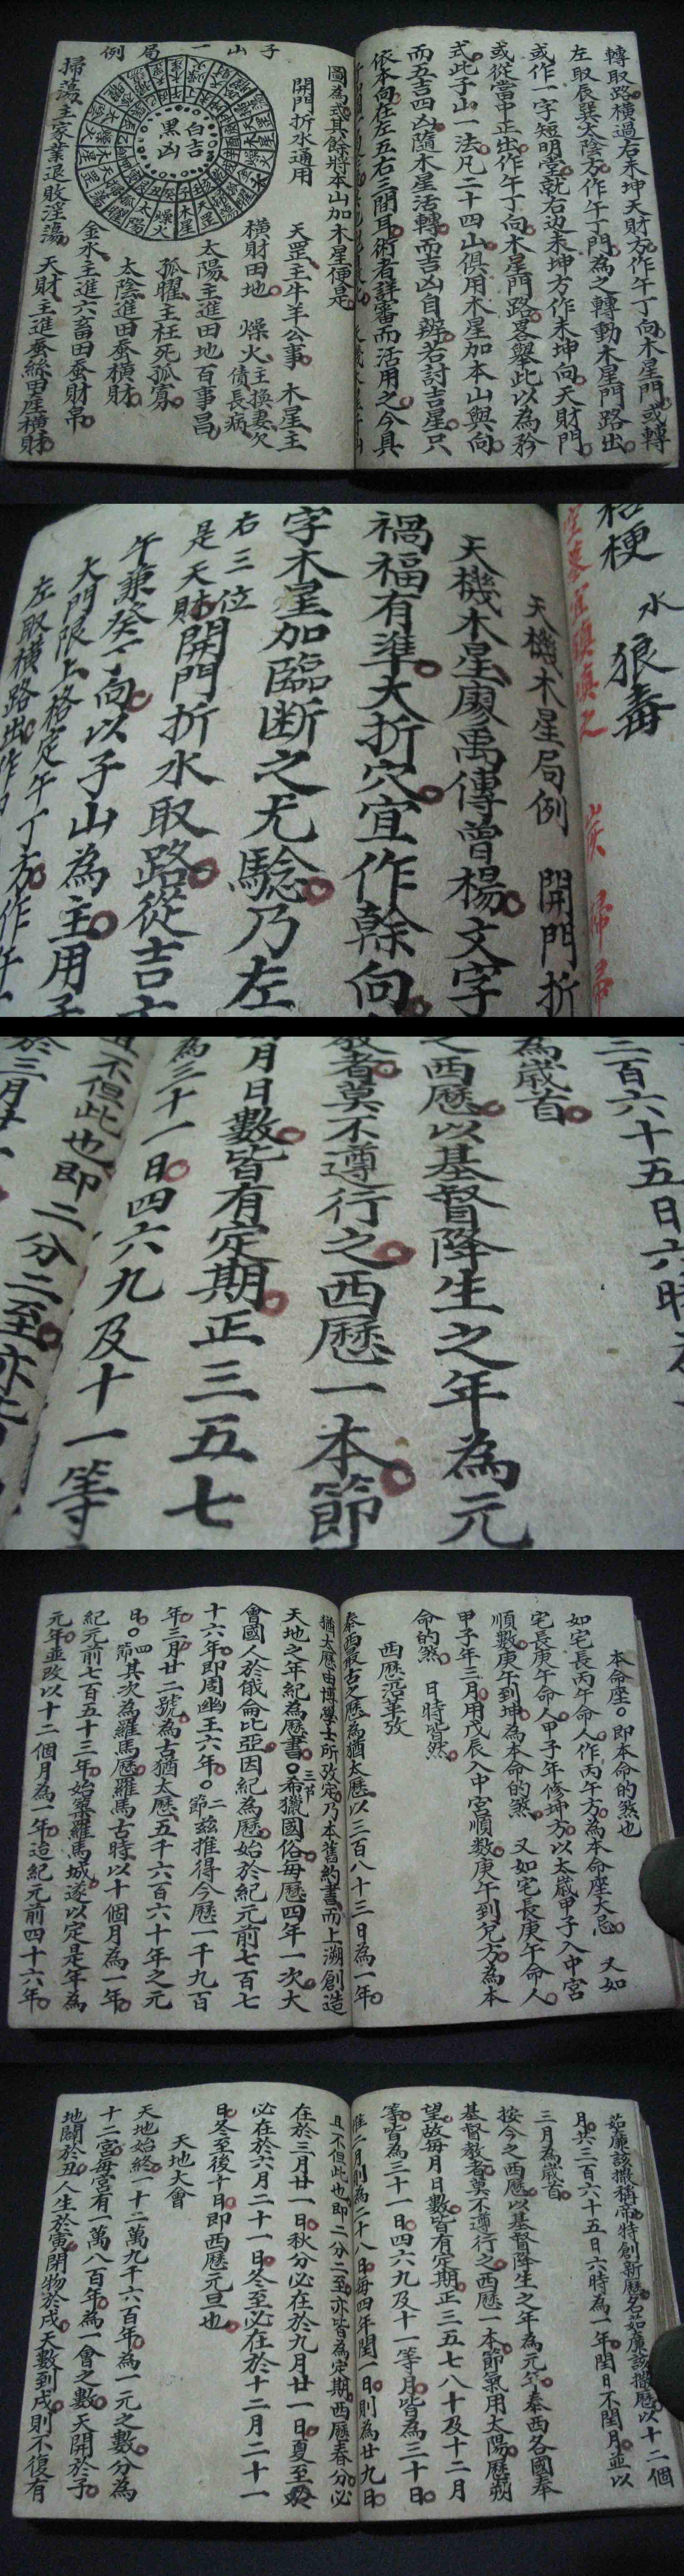 轉取路橫過右未坤天財方作午丁向木星門或轉
左取辰巽太陰方作午丁門為之轉動木星門路出
或作一字短明堂就右边未坤方作未坤向天財門
或從當中正出作午丁向木星門路畧舉此以為矜
式此子山一法凡二十四山俱用木星加本山與向
而五吉四凶隨木星活轉而吉凶自辨若討吉星只
依本向在左五右三開耳術者詳審而活用之今具
圖為式其餘將本山加木星便是
開門折水通用
子山一局例
白吉
黑凶
天罡主牛羊公事 木星主
橫財田地 燥火主換妻欠債長病
太陽主進田地百事昌
孤曜主枉死孤寡
太陰進田蚕橫財
金水主進六畜田蚕財帛
掃蕩主家業退敗淫蕩 天財主進蚕絲田產橫財
桔梗
水狼毒
天機木星局例 開門折
天機木星廖禹傳曾楊文字
禍福有準大折穴宜作幹向
字木星加臨断之尤騐乃左
右三位
是天財開門折水取路從吉
午兼癸丁向以子山為主用子
大門限上格定午丁方作午
左取橫路出作
三百六十五日六時為
為歲首
之西曆以基督降生之年為元
教者莫不遵行之西曆一本節
月日數皆有定期正三五七
為三十一日四六九及十一等
且不但此也即二分二至亦皆
於三月廿一
本命座即本命的煞也
如宅長丙午命人作丙午方為本命座大忌 又如
宅長庚午命人甲子年修坤方以太歲甲子入中宮
順數庚午到坤為本命的煞 又如宅長庚午命人
甲子年三月用戊辰入中宮順數庚午到兌方為本
命的煞 日時皆然
西曆沿革攷
泰西最古之曆為猶太曆以三百八十三日為一年
猶太曆由博學士所攷定乃本舊約書而上溯創造
天地之年紀為曆書三节希獵國俗每曆四年一次大
會國人於俄侖比亞因紀為曆始於紀元前七百七
十六年即周幽王六年二節玆推得今曆一千九百
年三月廿二號為古猶太曆五千六百六十年之元
日四節其次為羅馬曆羅馬古時以十個月為一年
紀元前七百五十三年始築羅馬城遂以定是年為
元年並攷以十二個月為一年造紀元前四十六年
茹廉該撒稱帝特創新曆名茹廉該撒曆以十二個
月共三百六十五日六時為一年閏日不閏月並以
三月為歲首
按今之西曆以基督降生之年為元年泰西各國奉
基督教者莫不遵行之西曆一本節氣用太陽曆朔
望故每月日數皆有定期正三五七八十及十二月
等皆為三十一日四六九及十一等月皆為三十日
惟二月則為二十八日每四年閏一日則為廿九日
且不但此也即二分二至亦皆為定期西曆春分必
在於三月廿一日秋分必在於九月廿一日夏至
必在於六月二十一日冬至必在於十二月二十一
日冬至後十日即西曆元旦也
天地大會
天地始終一十二萬九千六百年為一元之數分為
十二宮每宮有一萬八百年為一會之數天開於子
地闢於丑人生於寅閉物於戌天數到戌則不復有